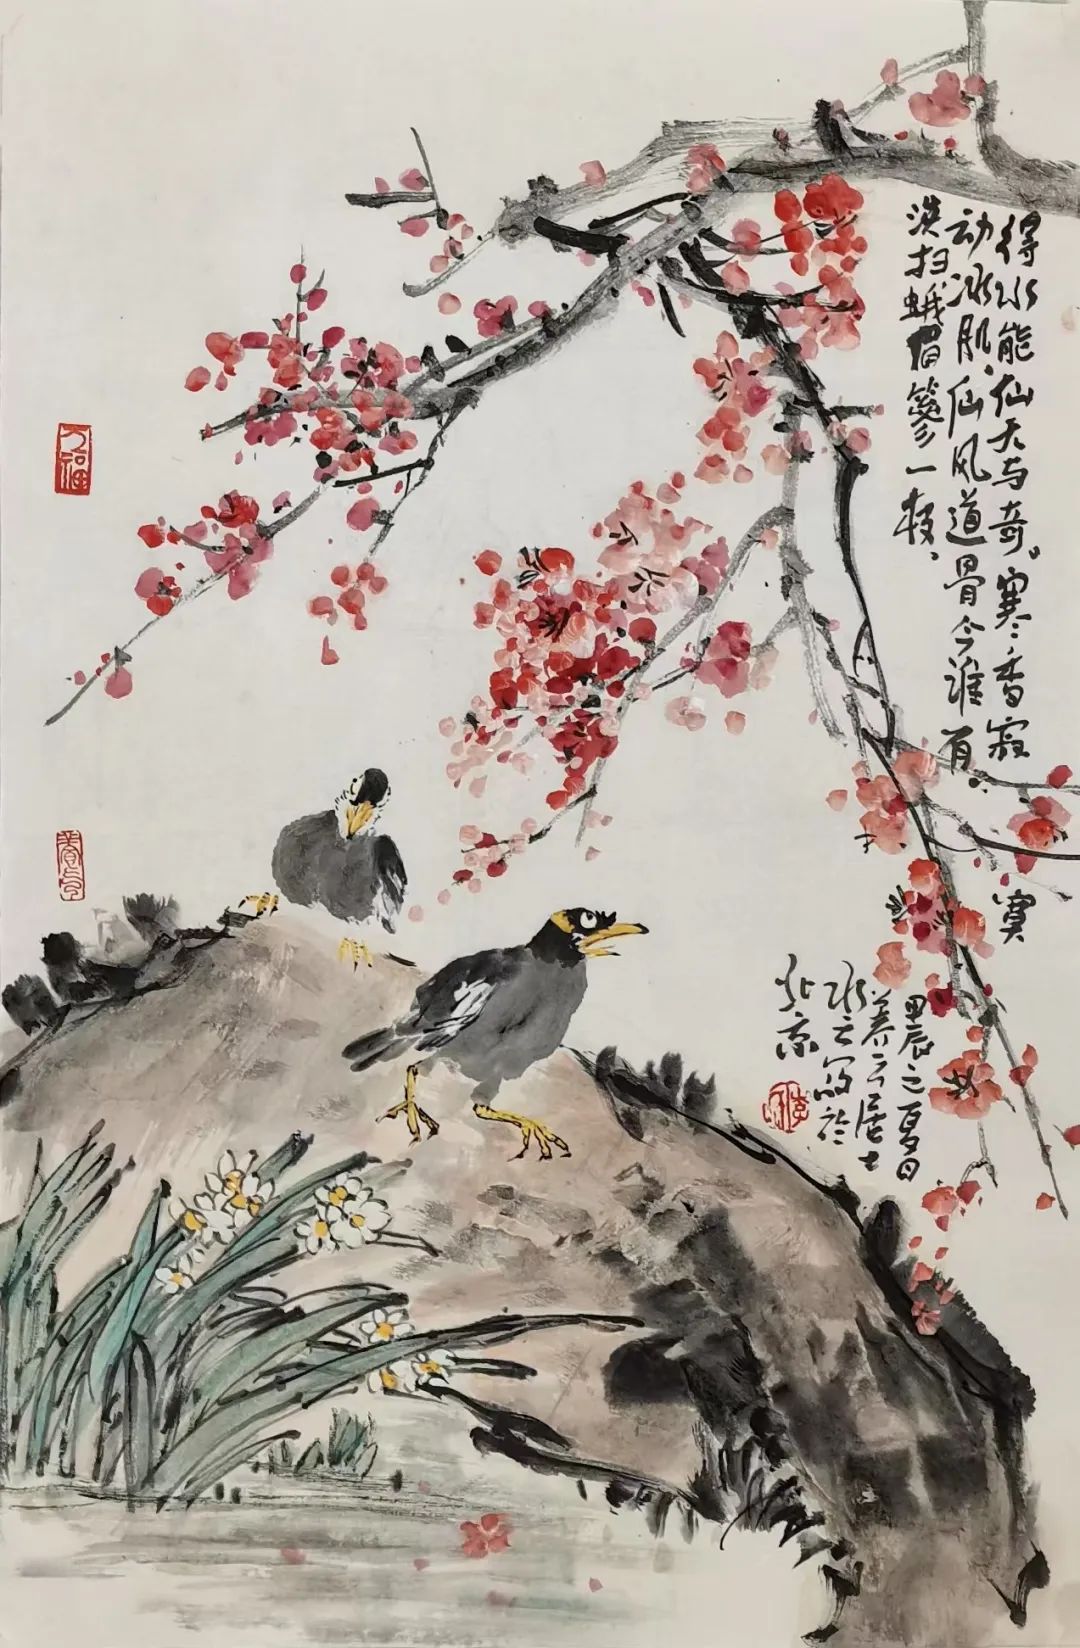 得水能仙天与奇。寒香寂寞
动冰肌、仙风道骨今谁有、
淡扫蛾眉篸一枝、
甲辰之夏日
养云居士
写於
北京